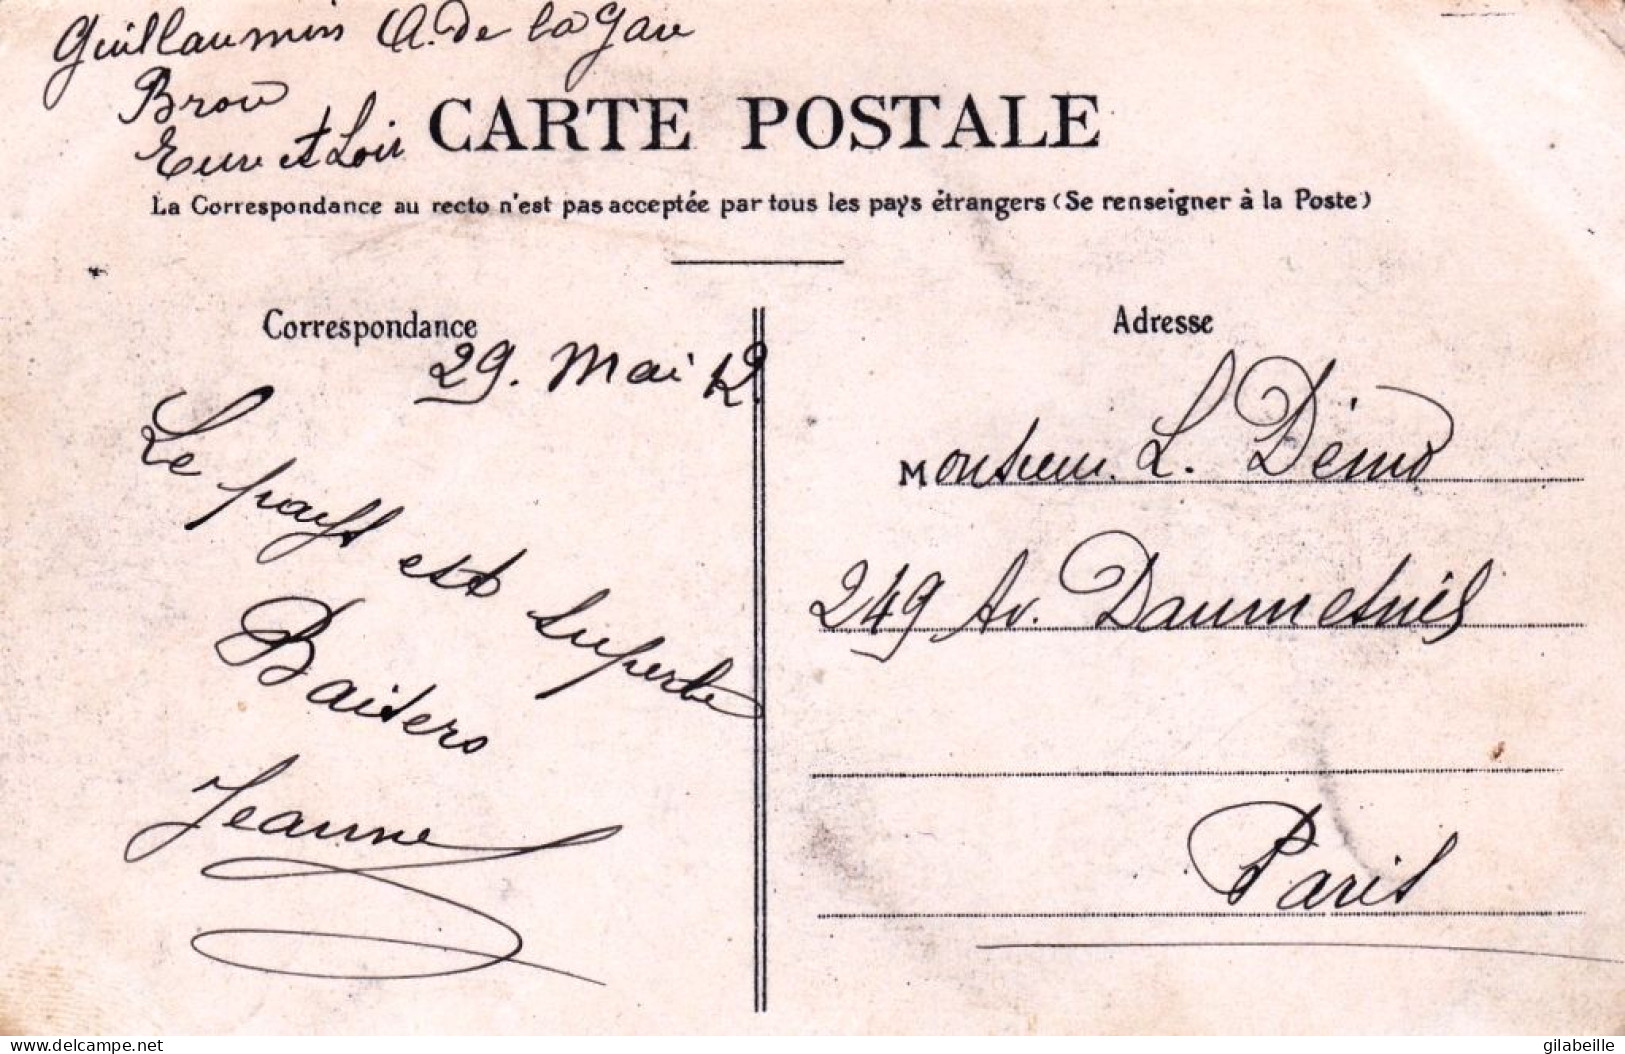 Guillaumin A. de la Gare
Brou
Eure et Loir
CARTE POSTALE
La Correspondance au recto n'est pas acceptée par tous les pays étrangers (Se renseigner à la Poste)
Correspondance
29. Mai 12
Le pays est superbe
Baisers
Jeanne
Adresse
Monsieur L.
249 Av. Daumesnil
Paris
www.delcampe.net
gilabeille